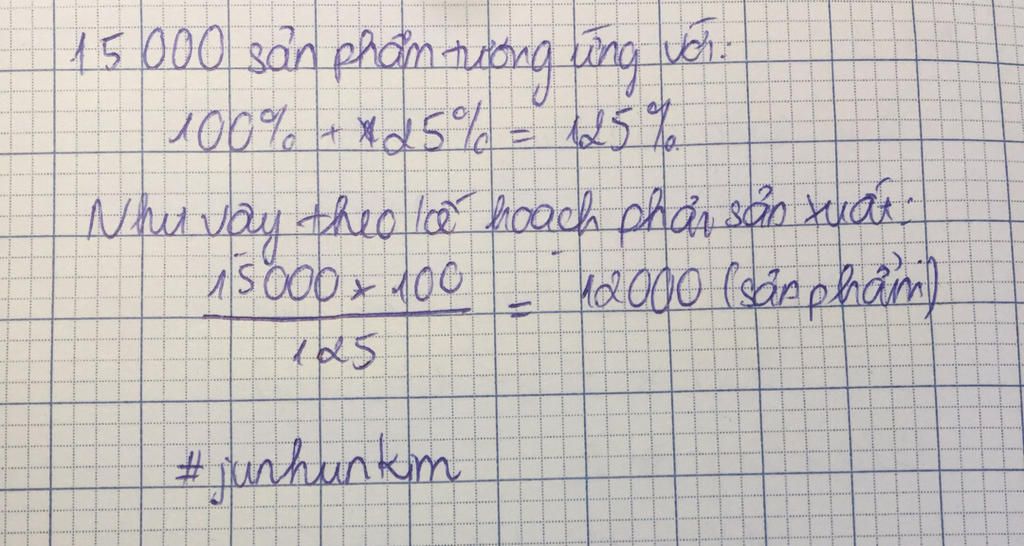 15 000 sản phẩm tương ứng với:
100% + 25% = 125%.
Như vậy theo kế hoạch phải sản xuất:
15000 x 100
125
= 12000 (sản phẩm)
#junhunkim